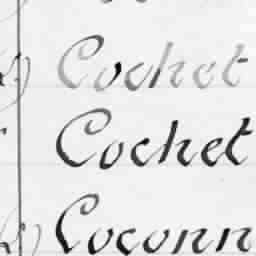 Cochet
Cochet
Coconn